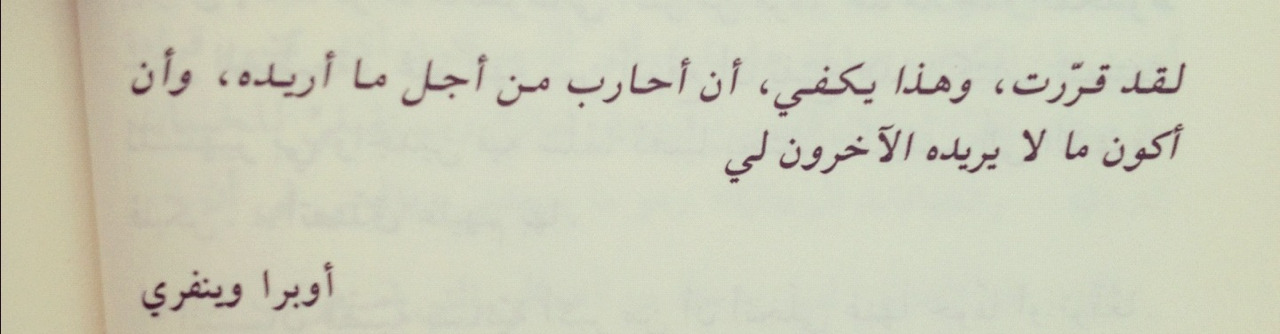 لقد قرّرت، وهذا يكفي، أن أحارب من أجل ما أريده، وأن
أكون ما لا يريده الآخرون لي
أوبرا وينفري